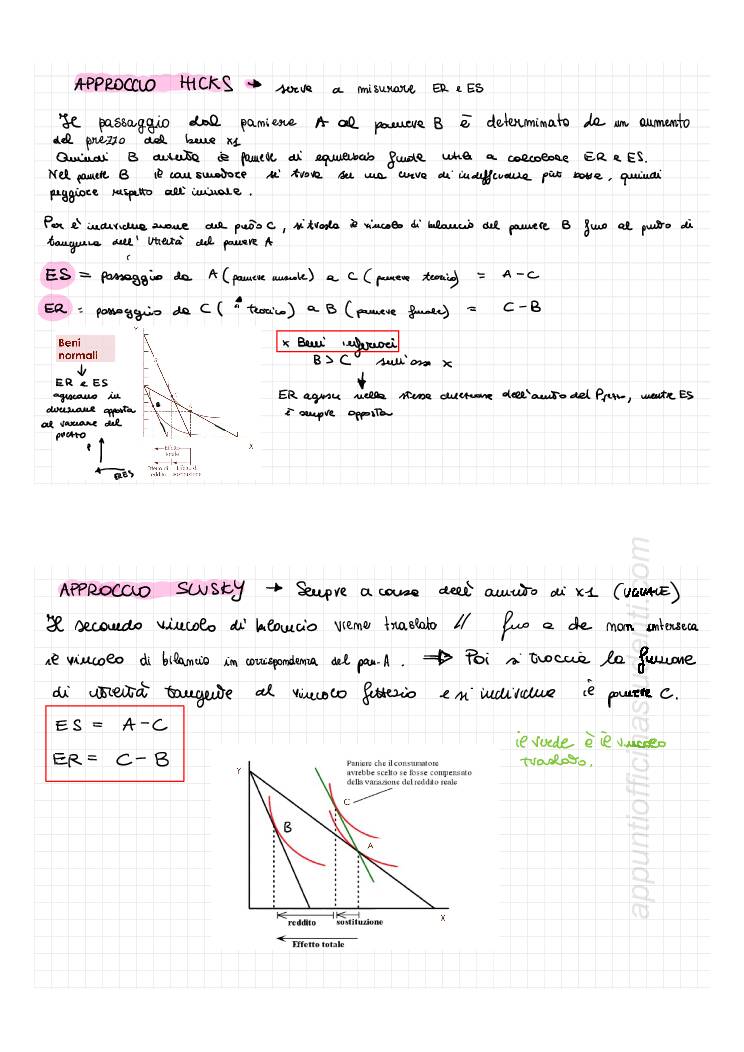 APPROCCIO HICKS → serve a misurare ER e ES
Il passaggio dal paniere A al paniere B è determinato da un aumento
del prezzo del bene x1
Quindi B diventa il paniere di equilibrio finale utile a calcolare ER e ES.
Nel paniere B il consumatore si trova su una curva di indifferenza più bassa, quindi
peggiore rispetto all'iniziale.
Per l'individuazione del punto C, si trasla il vincolo di bilancio del paniere B fino al punto di
tangenza dell'Utilità del paniere A
ES = passaggio da A (paniere iniziale) a C (paniere teorico) = A-C
ER = passaggio da C ( " teorico) a B (paniere finale) = C-B
Beni
normali
ER e ES
agiscono in
direzione opposta
al variare del
prezzo
P
ERES
X
Effetto
totale
Effetto di
reddito
sostituzione
x Beni inferiori
B > C sull'asse x
ER agisce nella stessa direzione dell'aumento del Prezzo, mentre ES
è sempre opposta
APPROCCIO SLUSKY → Sempre a causa dell'aumento di x1 (UGUALE)
Il secondo vincolo di bilancio viene traslato // fino a che non interseca
il vincolo di bilancio in corrispondenza del pan. A. ⇒ Poi si traccia la funzione
di utilità tangente al vincolo fittizio e si individua il paniere C.
ES = A-C
ER = C-B
il verde è il vincolo
traslato.
Paniere che il consumatore
avrebbe scelto se fosse compensato
della variazione del reddito reale
Y
C
B
A
X
reddito sostituzione
Effetto totale
appuntiofficinastudenti.com